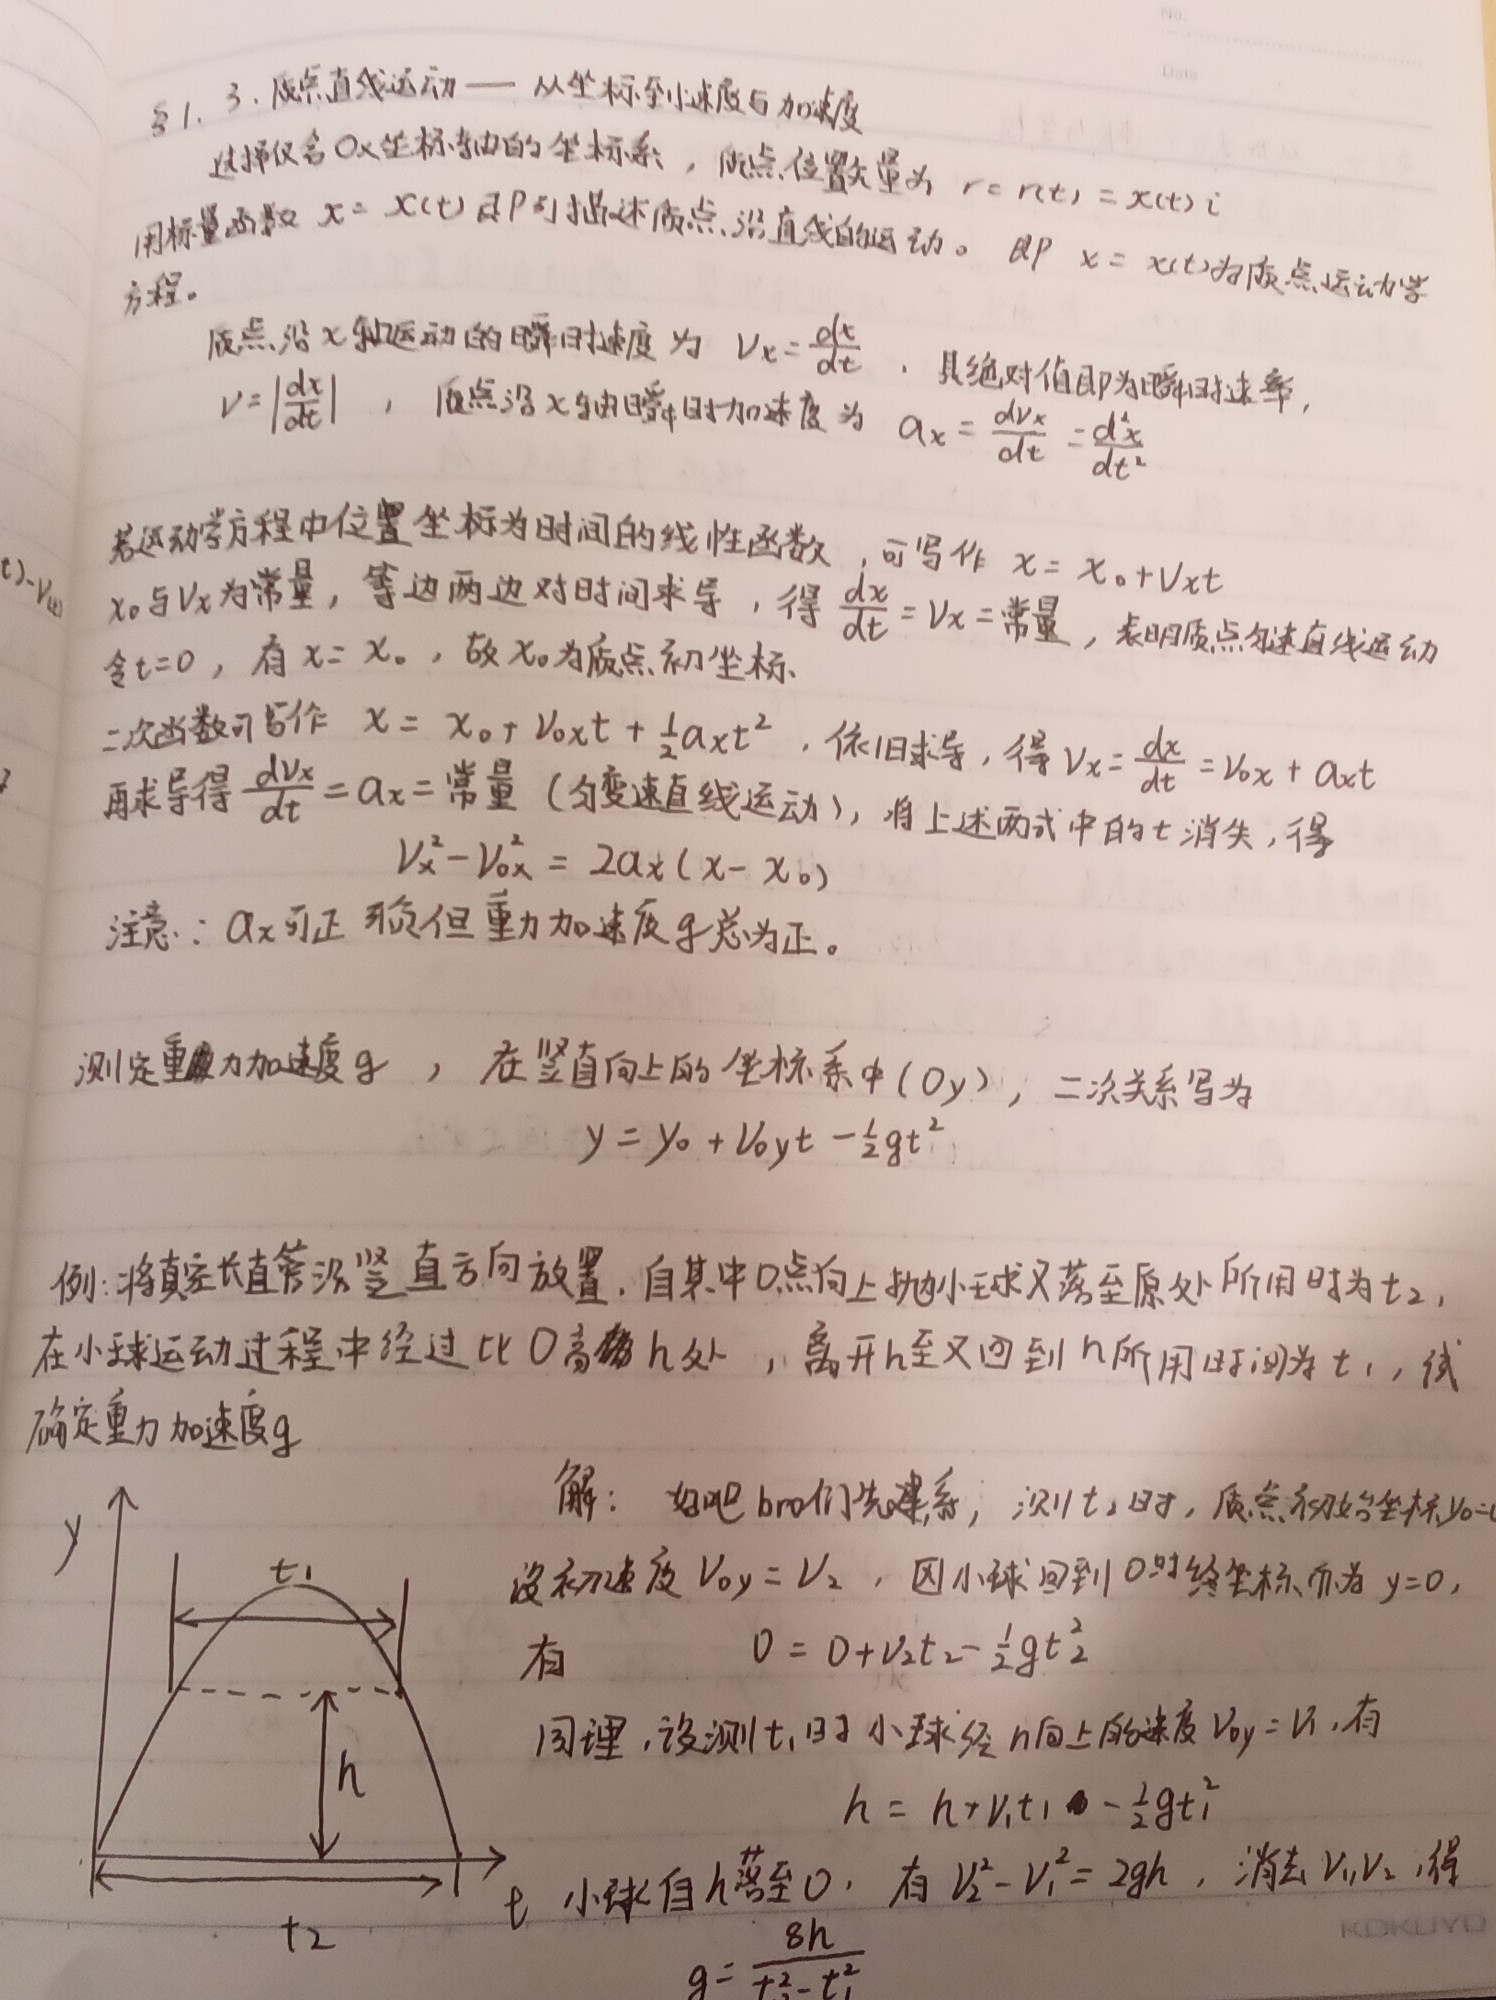 §1. 3. 质点直线运动 —— 从坐标到速度与加速度
选择仅含Ox坐标轴的坐标系，质点位置矢量为 r = r(t) = x(t) i
用标量函数 x = x(t) 即可描述质点沿直线的运动。即 x = x(t)为质点运动学
方程。
质点沿x轴运动的瞬时速度为 Vx = dx/dt ，其绝对值即为瞬时速率，
V = |dx/dt| ，质点沿x轴瞬时加速度为 ax = dVx/dt = d²x/dt²
若运动学方程中位置坐标为时间的线性函数，可写作 x = x₀ + Vxt
x₀与Vx为常量，等边两边对时间求导，得 dx/dt = Vx = 常量，表明质点匀速直线运动
令t=0，有 x = x₀，故x₀为质点初坐标
二次函数可写作 x = x₀ + V₀xt + ½axt²，依旧求导，得 Vx = dx/dt = V₀x + axt
再求导得 dVx/dt = ax = 常量（匀变速直线运动），将上述两式中的t消失，得
Vx² - V₀x² = 2ax(x - x₀)
注意：ax可正可负但重力加速度g总为正。
测定重力加速度g ，在竖直向上的坐标系中(Oy)，二次关系写为
y = y₀ + V₀yt - ½gt²
例：将真空长直管沿竖直方向放置，自其中O点向上抛小球又落至原处所用时为t₂，
在小球运动过程中经过比O高h处，离开h至又回到h所用时间为t₁，试
确定重力加速度g
解：好吧bro们先建系，测t₂时，质点初始坐标y₀=0
设初速度V₀y = V₂，因小球回到O时终坐标亦为y=0，
有 0 = 0 + V₂t₂ - ½gt₂²
同理，设测t₁时小球经h向上的速度V₀y = V₁，有
h = h + V₁t₁ - ½gt₁²
小球自h落至O，有 V₂² - V₁² = 2gh，消去V₁,V₂，得
g = 8h/(t₂² - t₁²)
y
t₁
h
t
t₂
t)-V(t)
KOKUYO